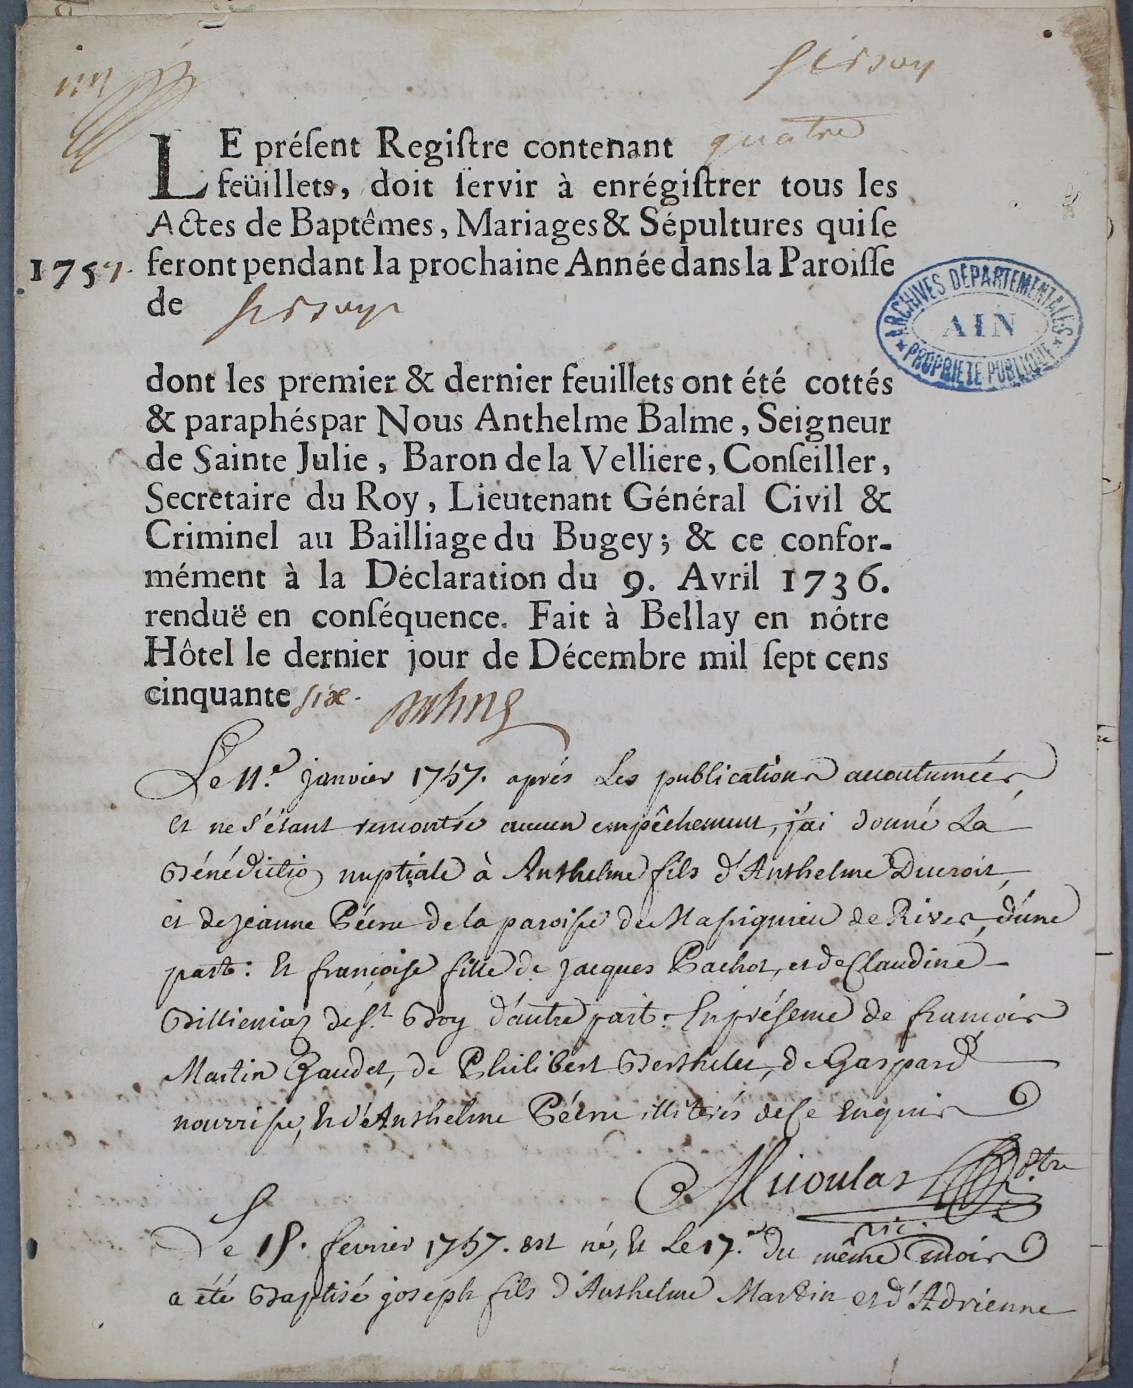 sissoy
LE préſent Regiſtre contenant quatre
feüillets, doit ſervir à enrégiſtrer tous les
Actes de Baptêmes, Mariages & Sépultures qui ſe
1757. feront pendant la prochaine Année dans la Paroiſſe
de
ARCHIVES DÉPARTEMENTALES
AIN
PROPRIÉTÉ PUBLIQUE
dont les premier & dernier feuillets ont été cottés
& paraphés par Nous Anthelme Balme, Seigneur
de Sainte Julie, Baron de la Velliere, Conſeiller,
Secretaire du Roy, Lieutenant Général Civil &
Criminel au Bailliage du Bugey; & ce confor-
mément à la Déclaration du 9. Avril 1736.
renduë en conſéquence. Fait à Bellay en nôtre
Hôtel le dernier jour de Décembre mil ſept cens
cinquante six.
Le 11.e janvier 1757. aprés Les publications accoutumées
Et ne s'étant remontré aucun empêchement, j'ai donné La
Bénédictio nuptiale à Anthelme fils d'Anthelme Ducroit,
et de jeanne Pécru de la paroisse de Massignieu de Rives, d'une
part: Et françoise fille de jacques Pachot, et de Claudine
Billiemaz de st. Boy d'autre part. En présence de francois
Martin Gaudet, de Philibert Berthelet, de Gaspard
nourrisse, Et d'Anthelme Pécru illiterés de ce Enquis
Nicoulas ptre
vic.
Le 15. fevrier 1757. est né, Et Le 17.e du même mois
a été Baptisé joseph fils d'Anthelme Martin et d'Adrienne